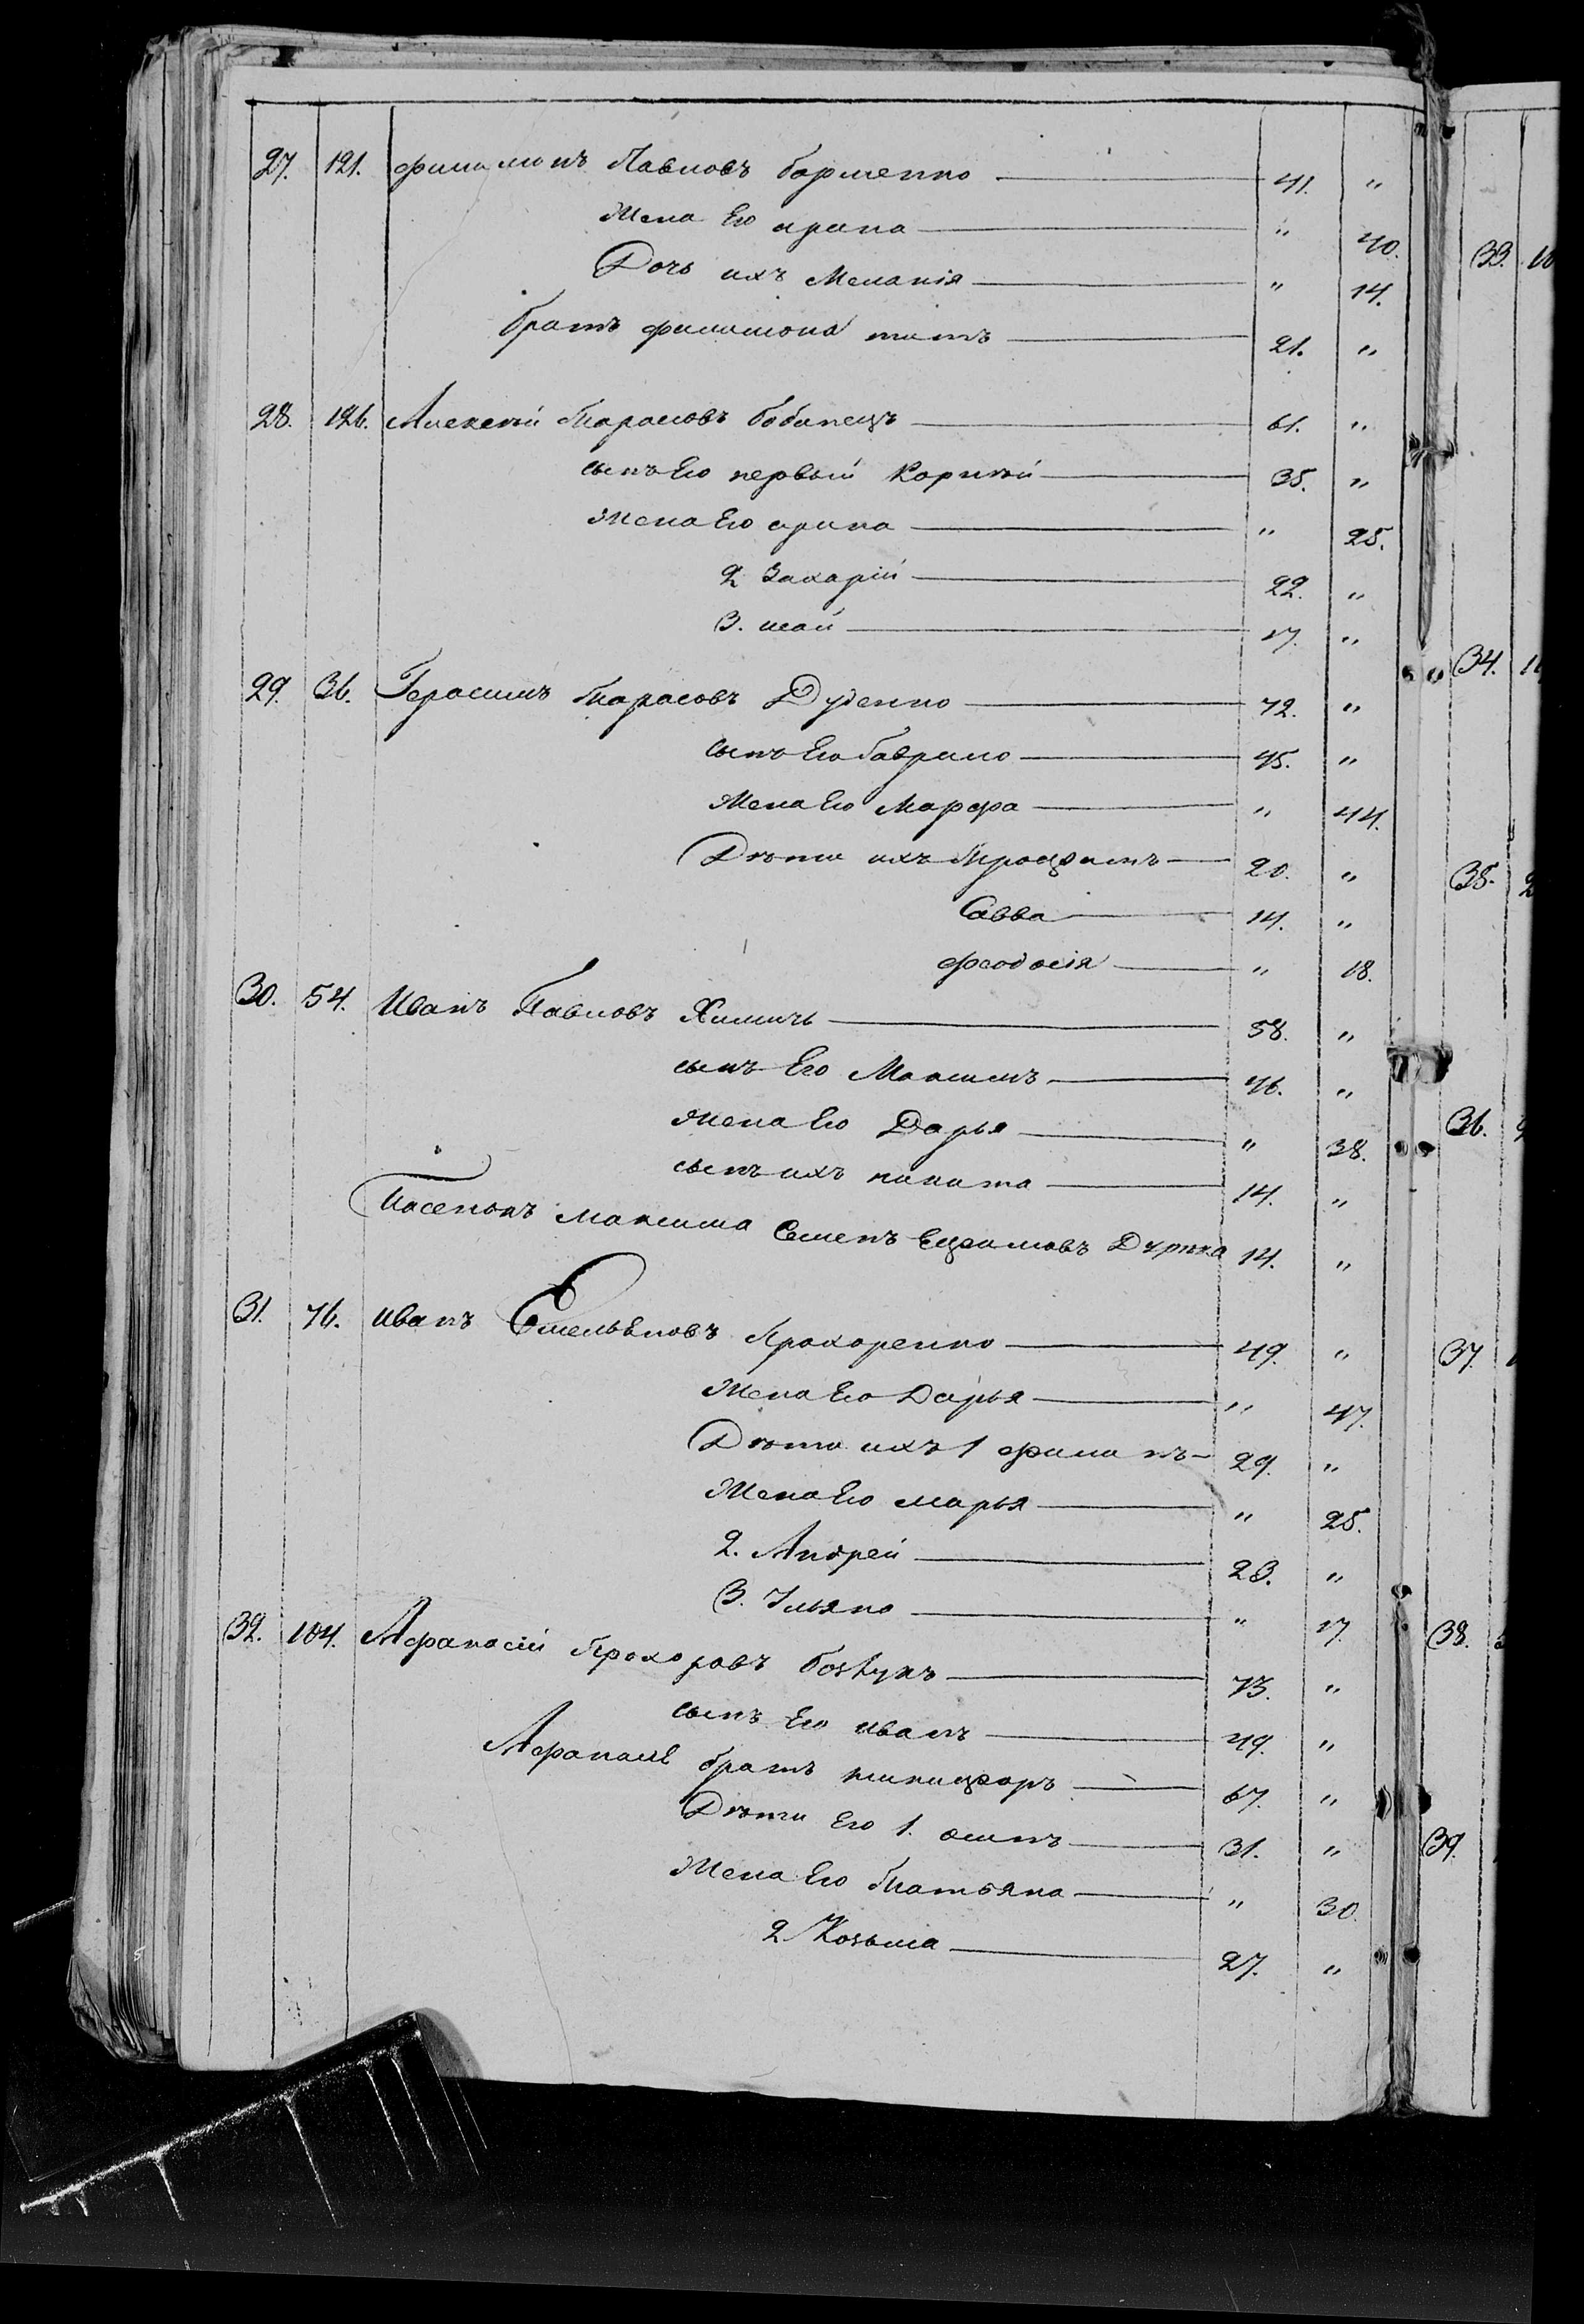 27. 121. филимонъ Павловъ борменко — 41. "
Жена Его ирина — " 40.
Дочь ихъ Меланія — " 14.
братъ филимона титъ — 21. "
28. 126. Алексей Тарасовъ бобинецъ — 61. "
сынъ Его первый Корней — 35. "
Жена Его ирина — " 25.
2 Захарій — 22. "
3. исай — 17. "
29. 36. Герасимъ Тарасовъ Дуденко — 72. "
сынъ Его Гаврило — 45. "
Жена Его Марфа — " 44.
Дѣти ихъ Трофимъ — 20. "
Савва — 14. "
феодосія — " 18.
30. 54. Иванъ Павловъ Химичь — 58. "
сынъ Его Максимъ — 46. "
Жена Его Дарья — " 38.
сынъ ихъ никита — 14. "
Пасенокъ максима Семенъ Ефимовъ 14. "
31. 76. иванъ Емельяновъ Прохоренко — 49. "
Жена Его Дарья — " 47.
Дѣти ихъ 1 филипъ — 29. "
Жена Его марья — " 25.
2. Андрей — 23. "
3. Ульяна — " 17.
32. 104. Афанасій Прохоровъ — 73. "
сынъ Его иванъ — 49. "
Афанасія братъ никифоръ — 67. "
Дѣти Его 1. осипъ — 31. "
Жена Его Татьяна — " 30.
2 Козьма — 27. "
33.
34.
35.
36.
37.
38.
39.